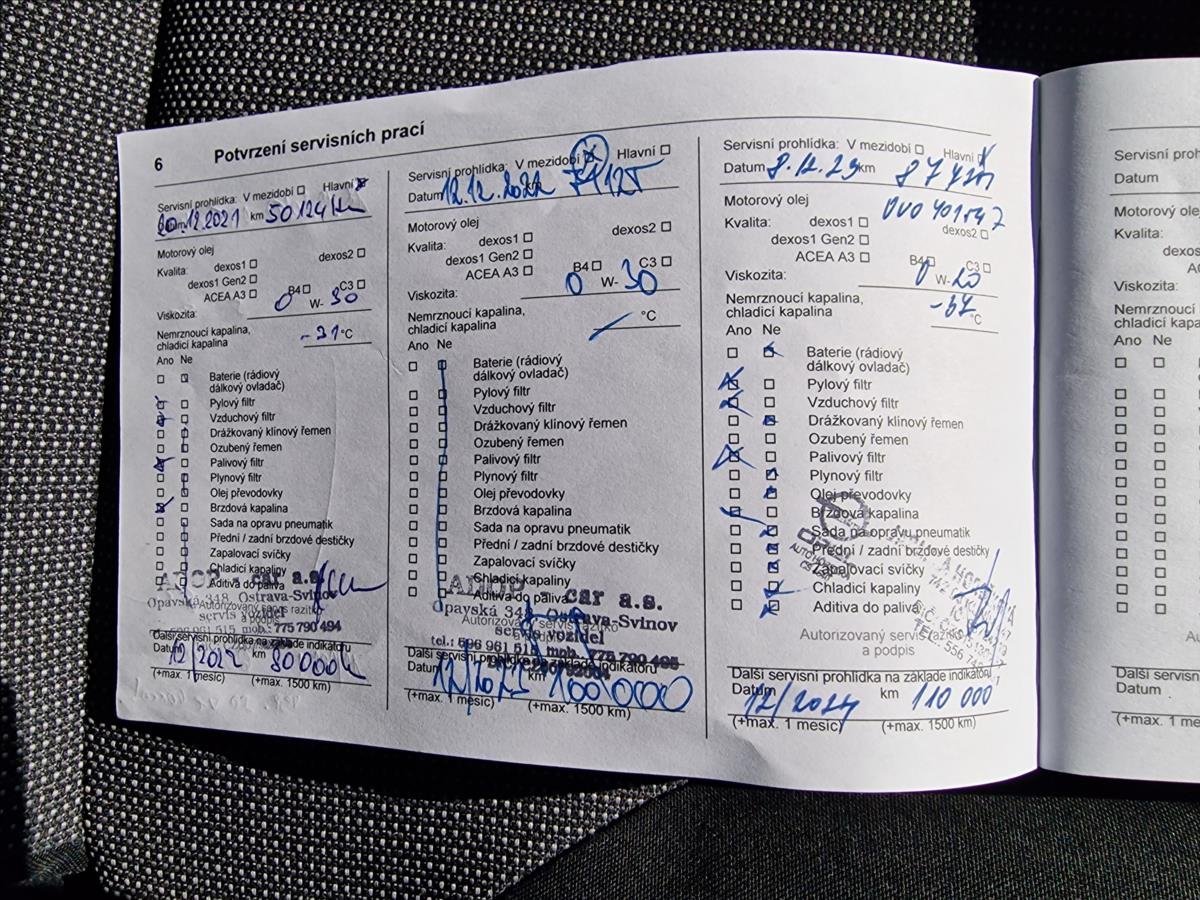 6 Potvrzení servisních prací
Servisní prohlídka: V mezidobí Hlavní
Datum 20.12.2021 km 50124 km
Motorový olej
Kvalita: dexos1 dexos2
dexos1 Gen2
ACEA A3 B4 C3
Viskozita: 0 W- 30
Nemrznoucí kapalina,
chladicí kapalina -31 °C
Ano Ne
Baterie (rádiový
dálkový ovladač)
Pylový filtr
Vzduchový filtr
Drážkovaný klínový řemen
Ozubený řemen
Palivový filtr
Plynový filtr
Olej převodovky
Brzdová kapalina
Sada na opravu pneumatik
Přední / zadní brzdové destičky
Zapalovací svíčky
Chladicí kapaliny
Aditiva do paliva
car a.s.
Opavská 348, Ostrava-Svinov
Autorizovaný servis razítko
servis vozidel
a podpis
596 961 515 mob.: 775 790 494
Další servisní prohlídka na základě indikátoru
Datum 12/2022 km 80000
(+max. 1 měsíc) (+max. 1500 km)
Servisní prohlídka: V mezidobí Hlavní
Datum 12.12.2022 km
Motorový olej
Kvalita: dexos1 dexos2
dexos1 Gen2
ACEA A3 B4 C3
Viskozita: 0 W- 30
Nemrznoucí kapalina,
chladicí kapalina °C
Ano Ne
Baterie (rádiový
dálkový ovladač)
Pylový filtr
Vzduchový filtr
Drážkovaný klínový řemen
Ozubený řemen
Palivový filtr
Plynový filtr
Olej převodovky
Brzdová kapalina
Sada na opravu pneumatik
Přední / zadní brzdové destičky
Zapalovací svíčky
Chladicí kapaliny
Aditiva do paliva
car a.s.
Opavská 348, Ostrava-Svinov
Autorizovaný servis razítko
servis vozidel
tel.: 596 961 515, mob. 775 790 495
Další servisní prohlídka na základě indikátoru
Datum 12/2023 km 100 000
(+max. 1 měsíc) (+max. 1500 km)
Servisní prohlídka: V mezidobí Hlavní
Datum 8.12.23 km
Motorový olej
Kvalita: dexos1 dexos2
dexos1 Gen2
ACEA A3 B4 C3
Viskozita: 0 W- 20
Nemrznoucí kapalina,
chladicí kapalina -37 °C
Ano Ne
Baterie (rádiový
dálkový ovladač)
Pylový filtr
Vzduchový filtr
Drážkovaný klínový řemen
Ozubený řemen
Palivový filtr
Plynový filtr
Olej převodovky
Brzdová kapalina
Sada na opravu pneumatik
Přední / zadní brzdové destičky
Zapalovací svíčky
Chladicí kapaliny
Aditiva do paliva
Autorizovaný servis razítko
a podpis
Další servisní prohlídka na základě indikátoru
Datum 12/2024 km 110 000
(+max. 1 měsíc) (+max. 1500 km)
Servisní
Datum
Motorový
Kvalita:
Viskozita:
Nemrznoucí
chladicí kapa
Ano Ne
Další servis
Datum
(+max. 1 mě